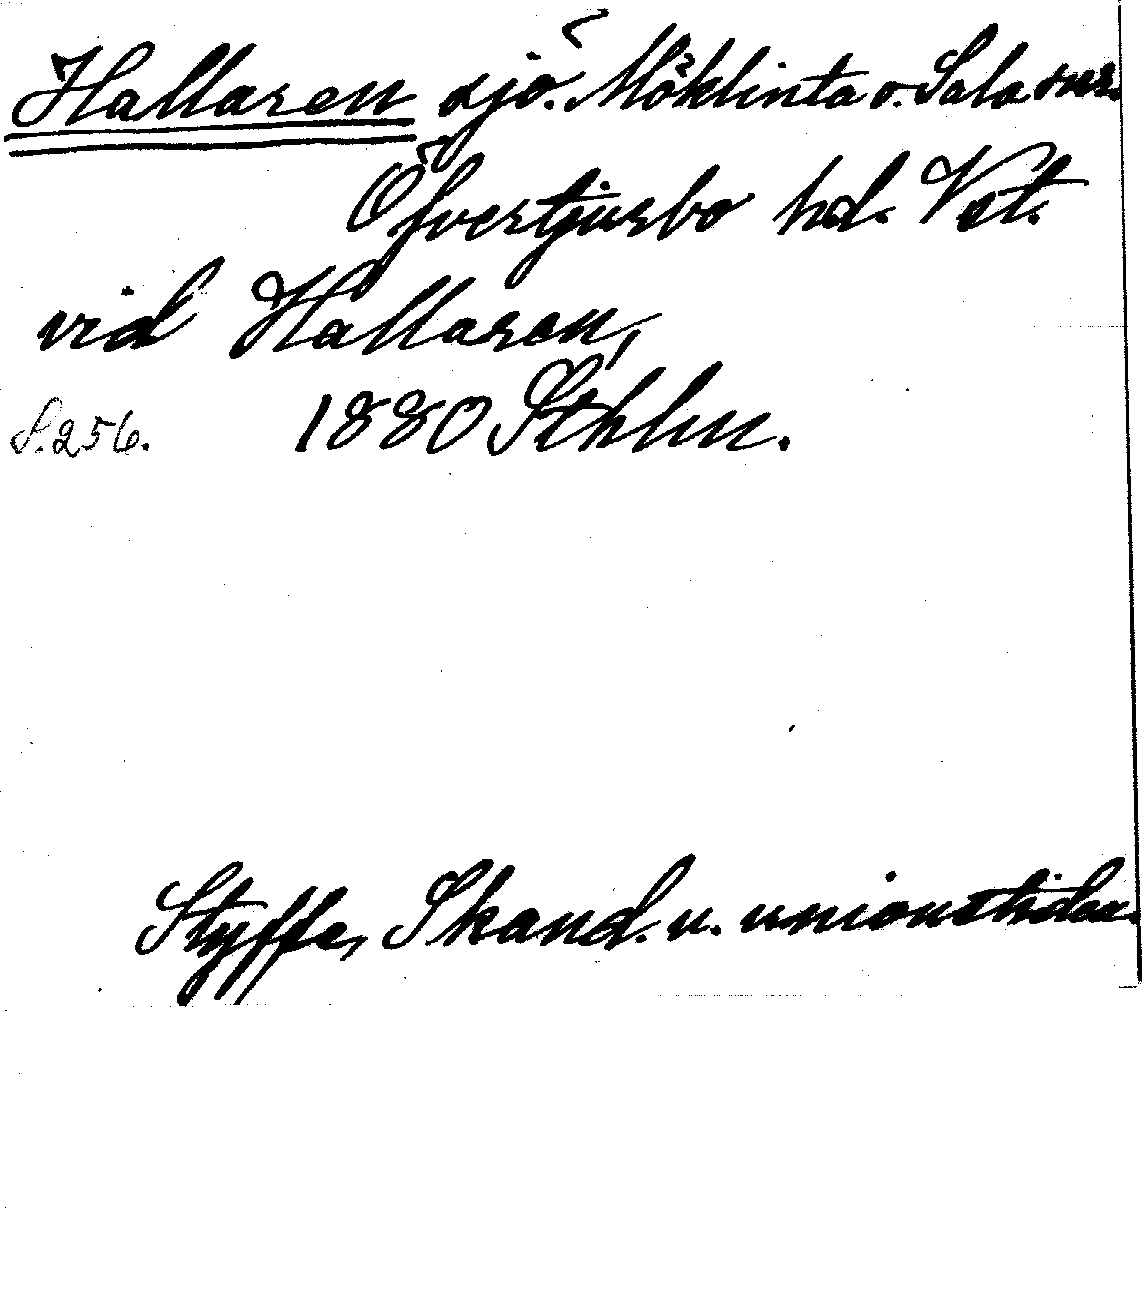 Hallaren sjö. Möklinta o. Sala snr.
Öfvertjurbo hd. Vst.
vid Hallaren,
S. 256. 1880 Sthlm.
Styffe, Skand. u. unionstiden.